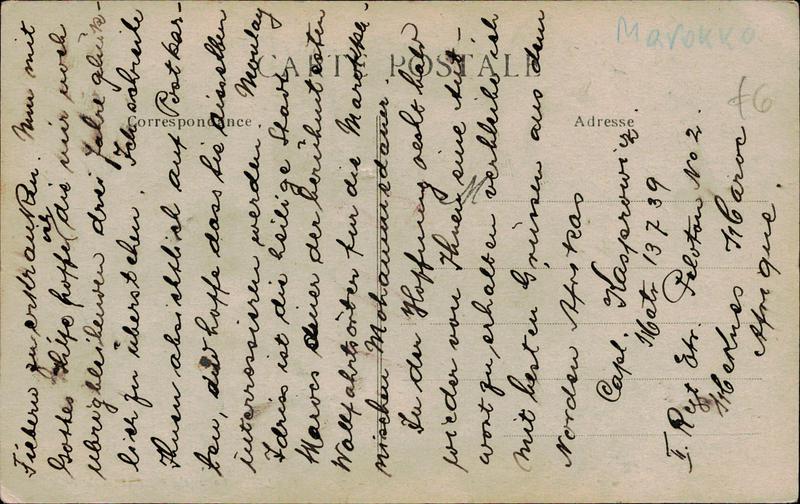 CARTE POSTALE
Correspondance
Adresse
Marokko
f6
Fiebern zu erkranken. Nun mit
Gottes Hilfe hoffe ich die mir noch
übrigbleibenden drei Jahre glück-
lich zu überstehen. Ich schreibe
Ihnen absichtlich auf Postkar-
ten, und hoffe dass sie dieselben
interressieren werden. Moulay
Idriss ist die heilige Stadt
Marocs einer der berühmtesten
Wallfahrtsörter für die Marokka-
nischen Mohammedaner.
In der Hoffnung recht bald
wieder von Ihnen eine Ant-
wort zu erhalten verbleibe ich
Mit besten Grüssen aus dem
Norden Afrikas
Capl. Kasprowiz.
Matr 13739
I. Regt Etr. Peloton No 2.
Meknes Maroc
Afrique.